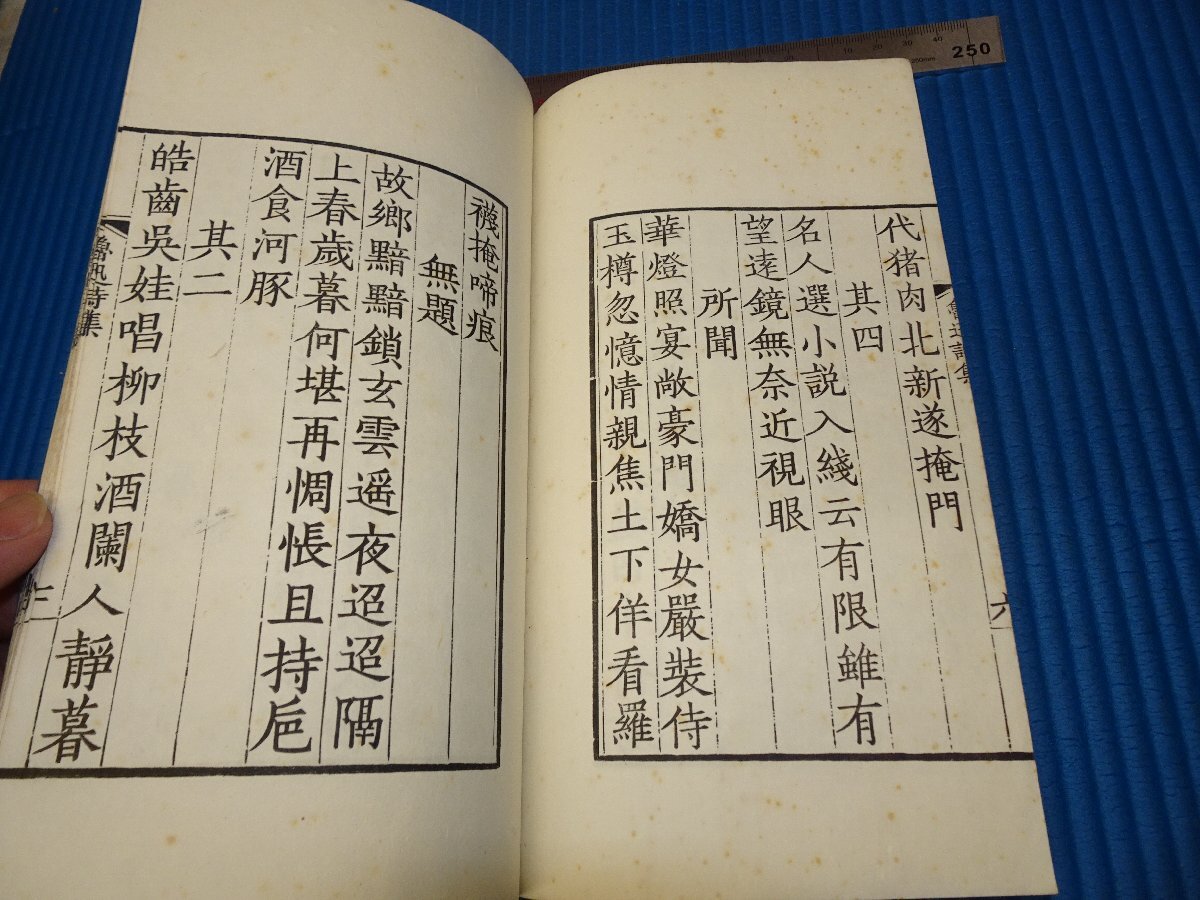 代猪肉北新遂掩門
其四
名人選小説入綫云有限雖有
望遠鏡無奈近視眼
所聞
華燈照宴敞豪門嬌女嚴裝侍
玉樽忽憶情親焦土下佯看羅
襪掩啼痕
無題
故鄉黯黯鎖玄雲遥夜迢迢隔
上春歲暮何堪再惆悵且持卮
酒食河豚
其二
皓齒吳娃唱柳枝酒闌人靜暮
魯迅詩集
250